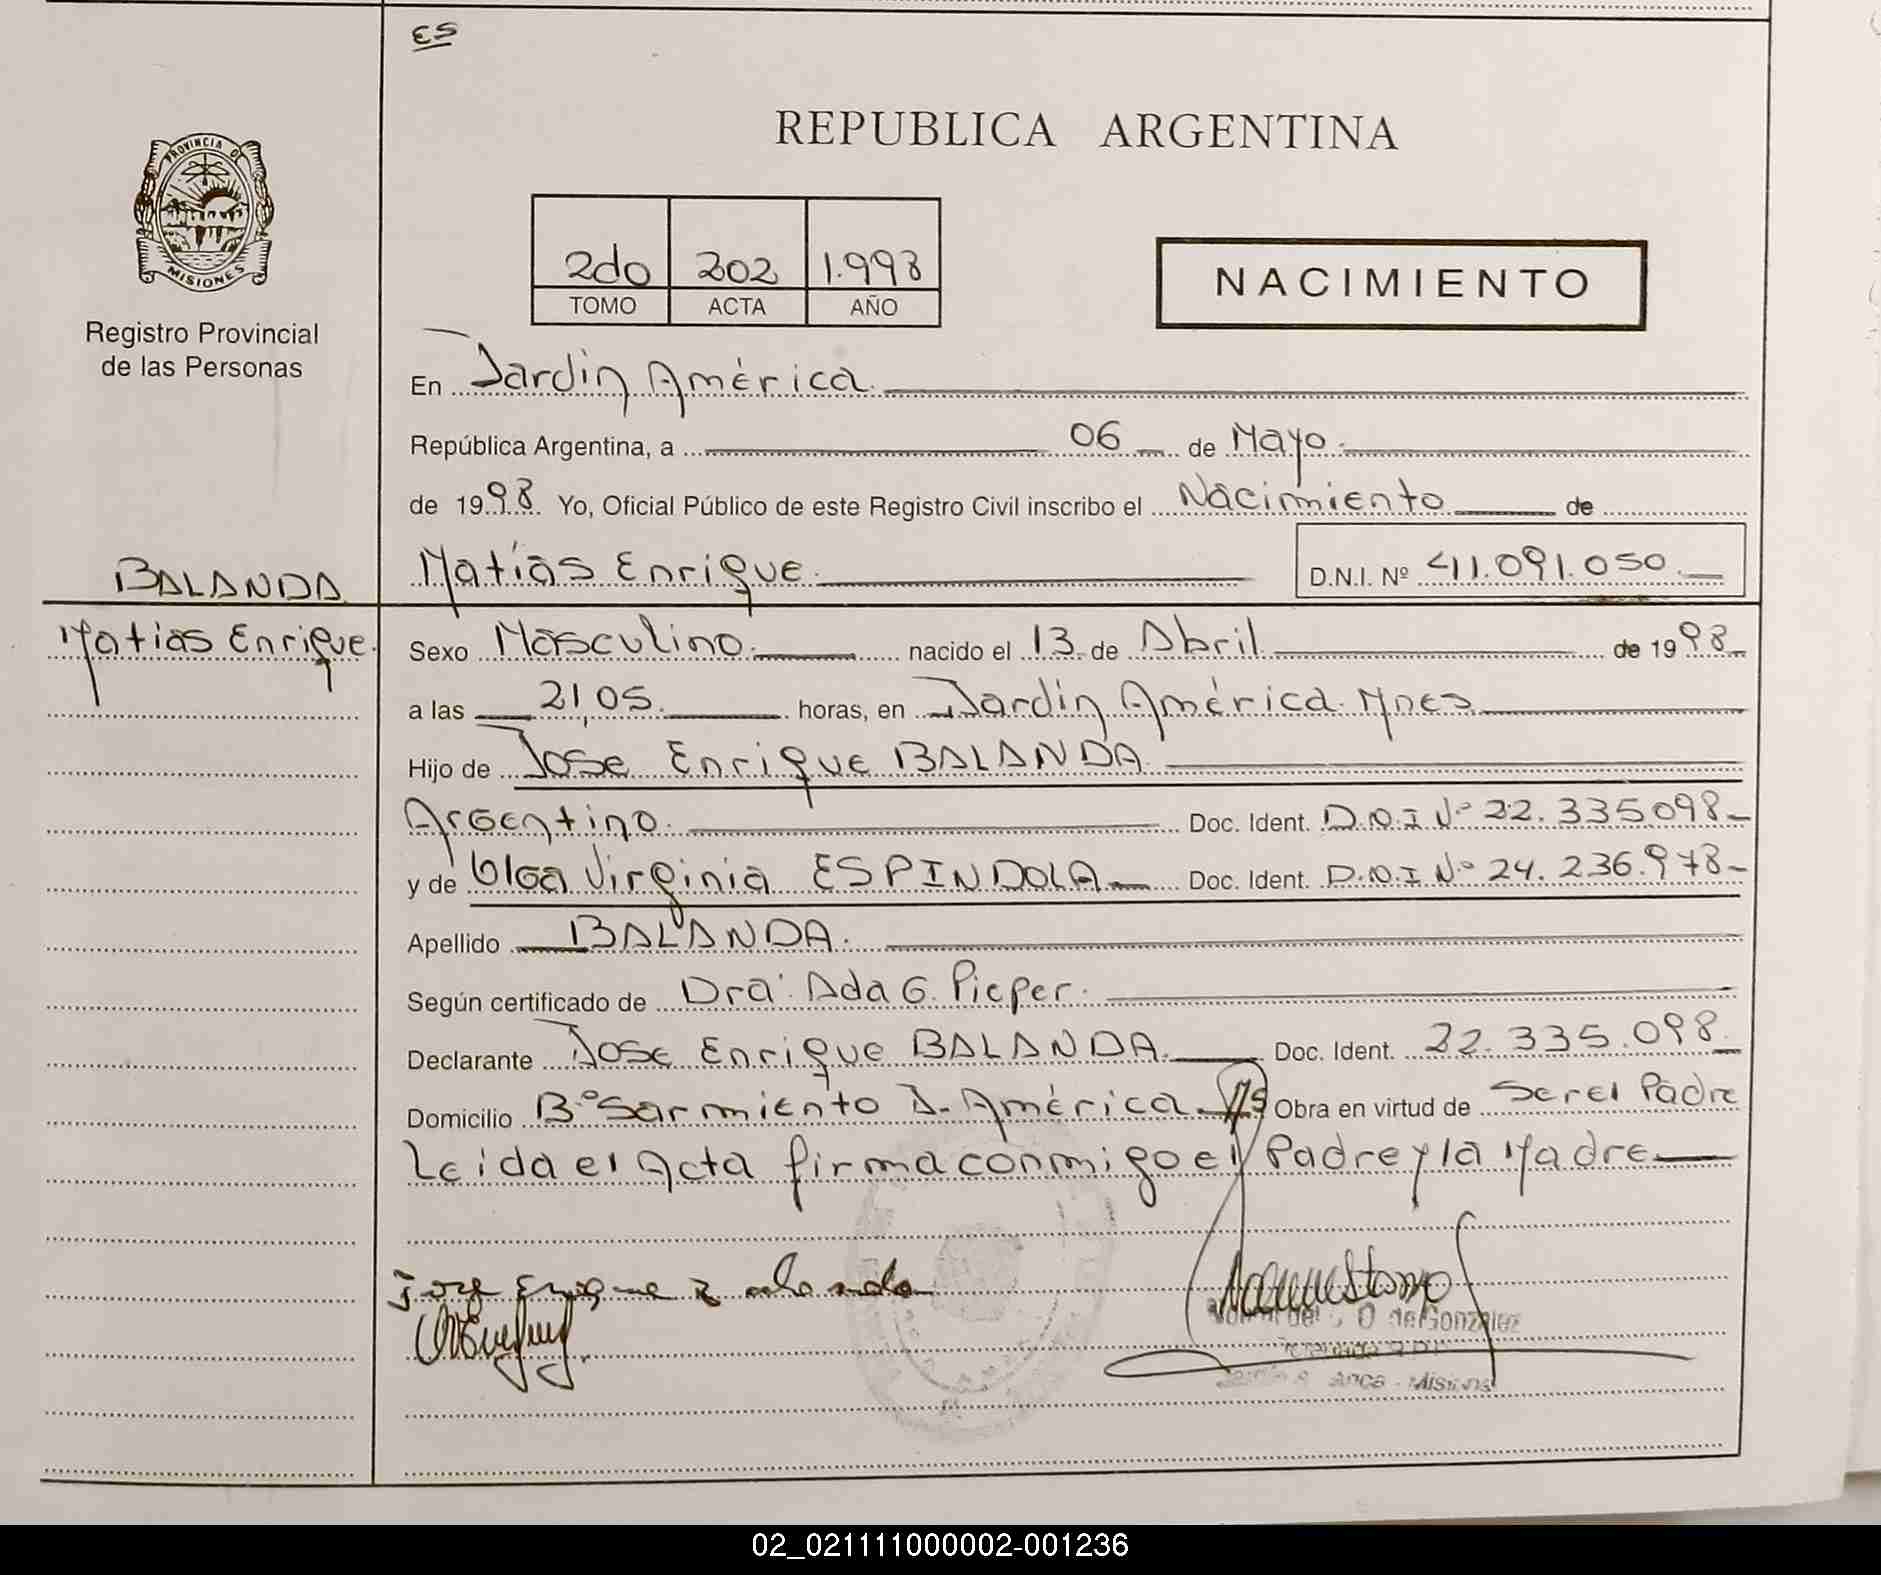 ES
REPUBLICA ARGENTINA
PROVINCIA DE
MISIONES
Registro Provincial
de las Personas
2do 202 1.998
TOMO ACTA AÑO
NACIMIENTO
En Jardin América.
República Argentina, a 06 de Mayo.
de 1998. Yo, Oficial Público de este Registro Civil inscribo el Nacimiento de
BALANDA
Matías Enrique. D.N.I. Nº 41.091.050.
Matias Enrique.
Sexo Masculino. nacido el 13 de Abril de 1998
a las 21,05. horas, en Jardin América. Mnes.
Hijo de Jose Enrique BALANDA.
Argentino. Doc. Ident. D.N.I Nº 22.335.098
y de Olga Virginia ESPINDOLA Doc. Ident. D.N.I Nº 24.236.978
Apellido BALANDA.
Según certificado de Dra. Ada G. Pieper.
Declarante Jose Enrique BALANDA. Doc. Ident. 22.335.098.
Domicilio Bº Sarmiento J. América. Obra en virtud de Ser el Padre
Leida el Acta firma conmigo el Padre y la Madre
Jose Enrique
de Gonzalez
Misiones
02_021111000002-001236